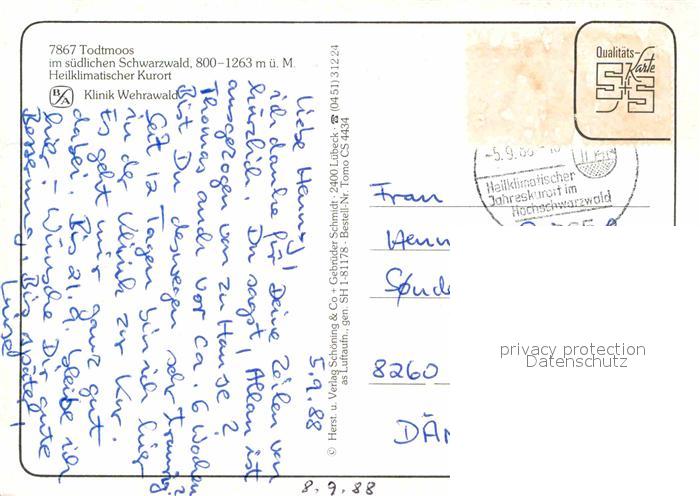 7867 Todtmoos
im südlichen Schwarzwald, 800–1263 m ü. M.
Heilklimatischer Kurort
B/A Klinik Wehrawald
5.9.88
Liebe Henny,
ich danke für Deine Zeilen von
kürzlich. Du sagst, Allan ist
ausgezogen von zu Hause?
Thomas auch vor ca. 6 Wochen
Bist Du deswegen sehr traurig?
Seit 12 Tagen bin ich hier
in der Klinik zur Kur.
Es geht mir ganz gut
dabei. Bis 21.9. bleibe ich
hier – Wünsche Dir gute
Besserung, Bis später,
Luise
© Herst. u. Verlag Schöning & Co + Gebrüder Schmidt · 2400 Lübeck · ☎ (0451) 31224
als Luftaufn., gen. SH 1-81178 · Bestell-Nr. Tomo CS 4434
Qualitäts-
Karte
S+S
-5.9.88-
Heilklimatischer
Jahreskurort im
Hochschwarzwald
Frau
Henn
Sønde
8260
DÄN
privacy protection
Datenschutz
8.9.88